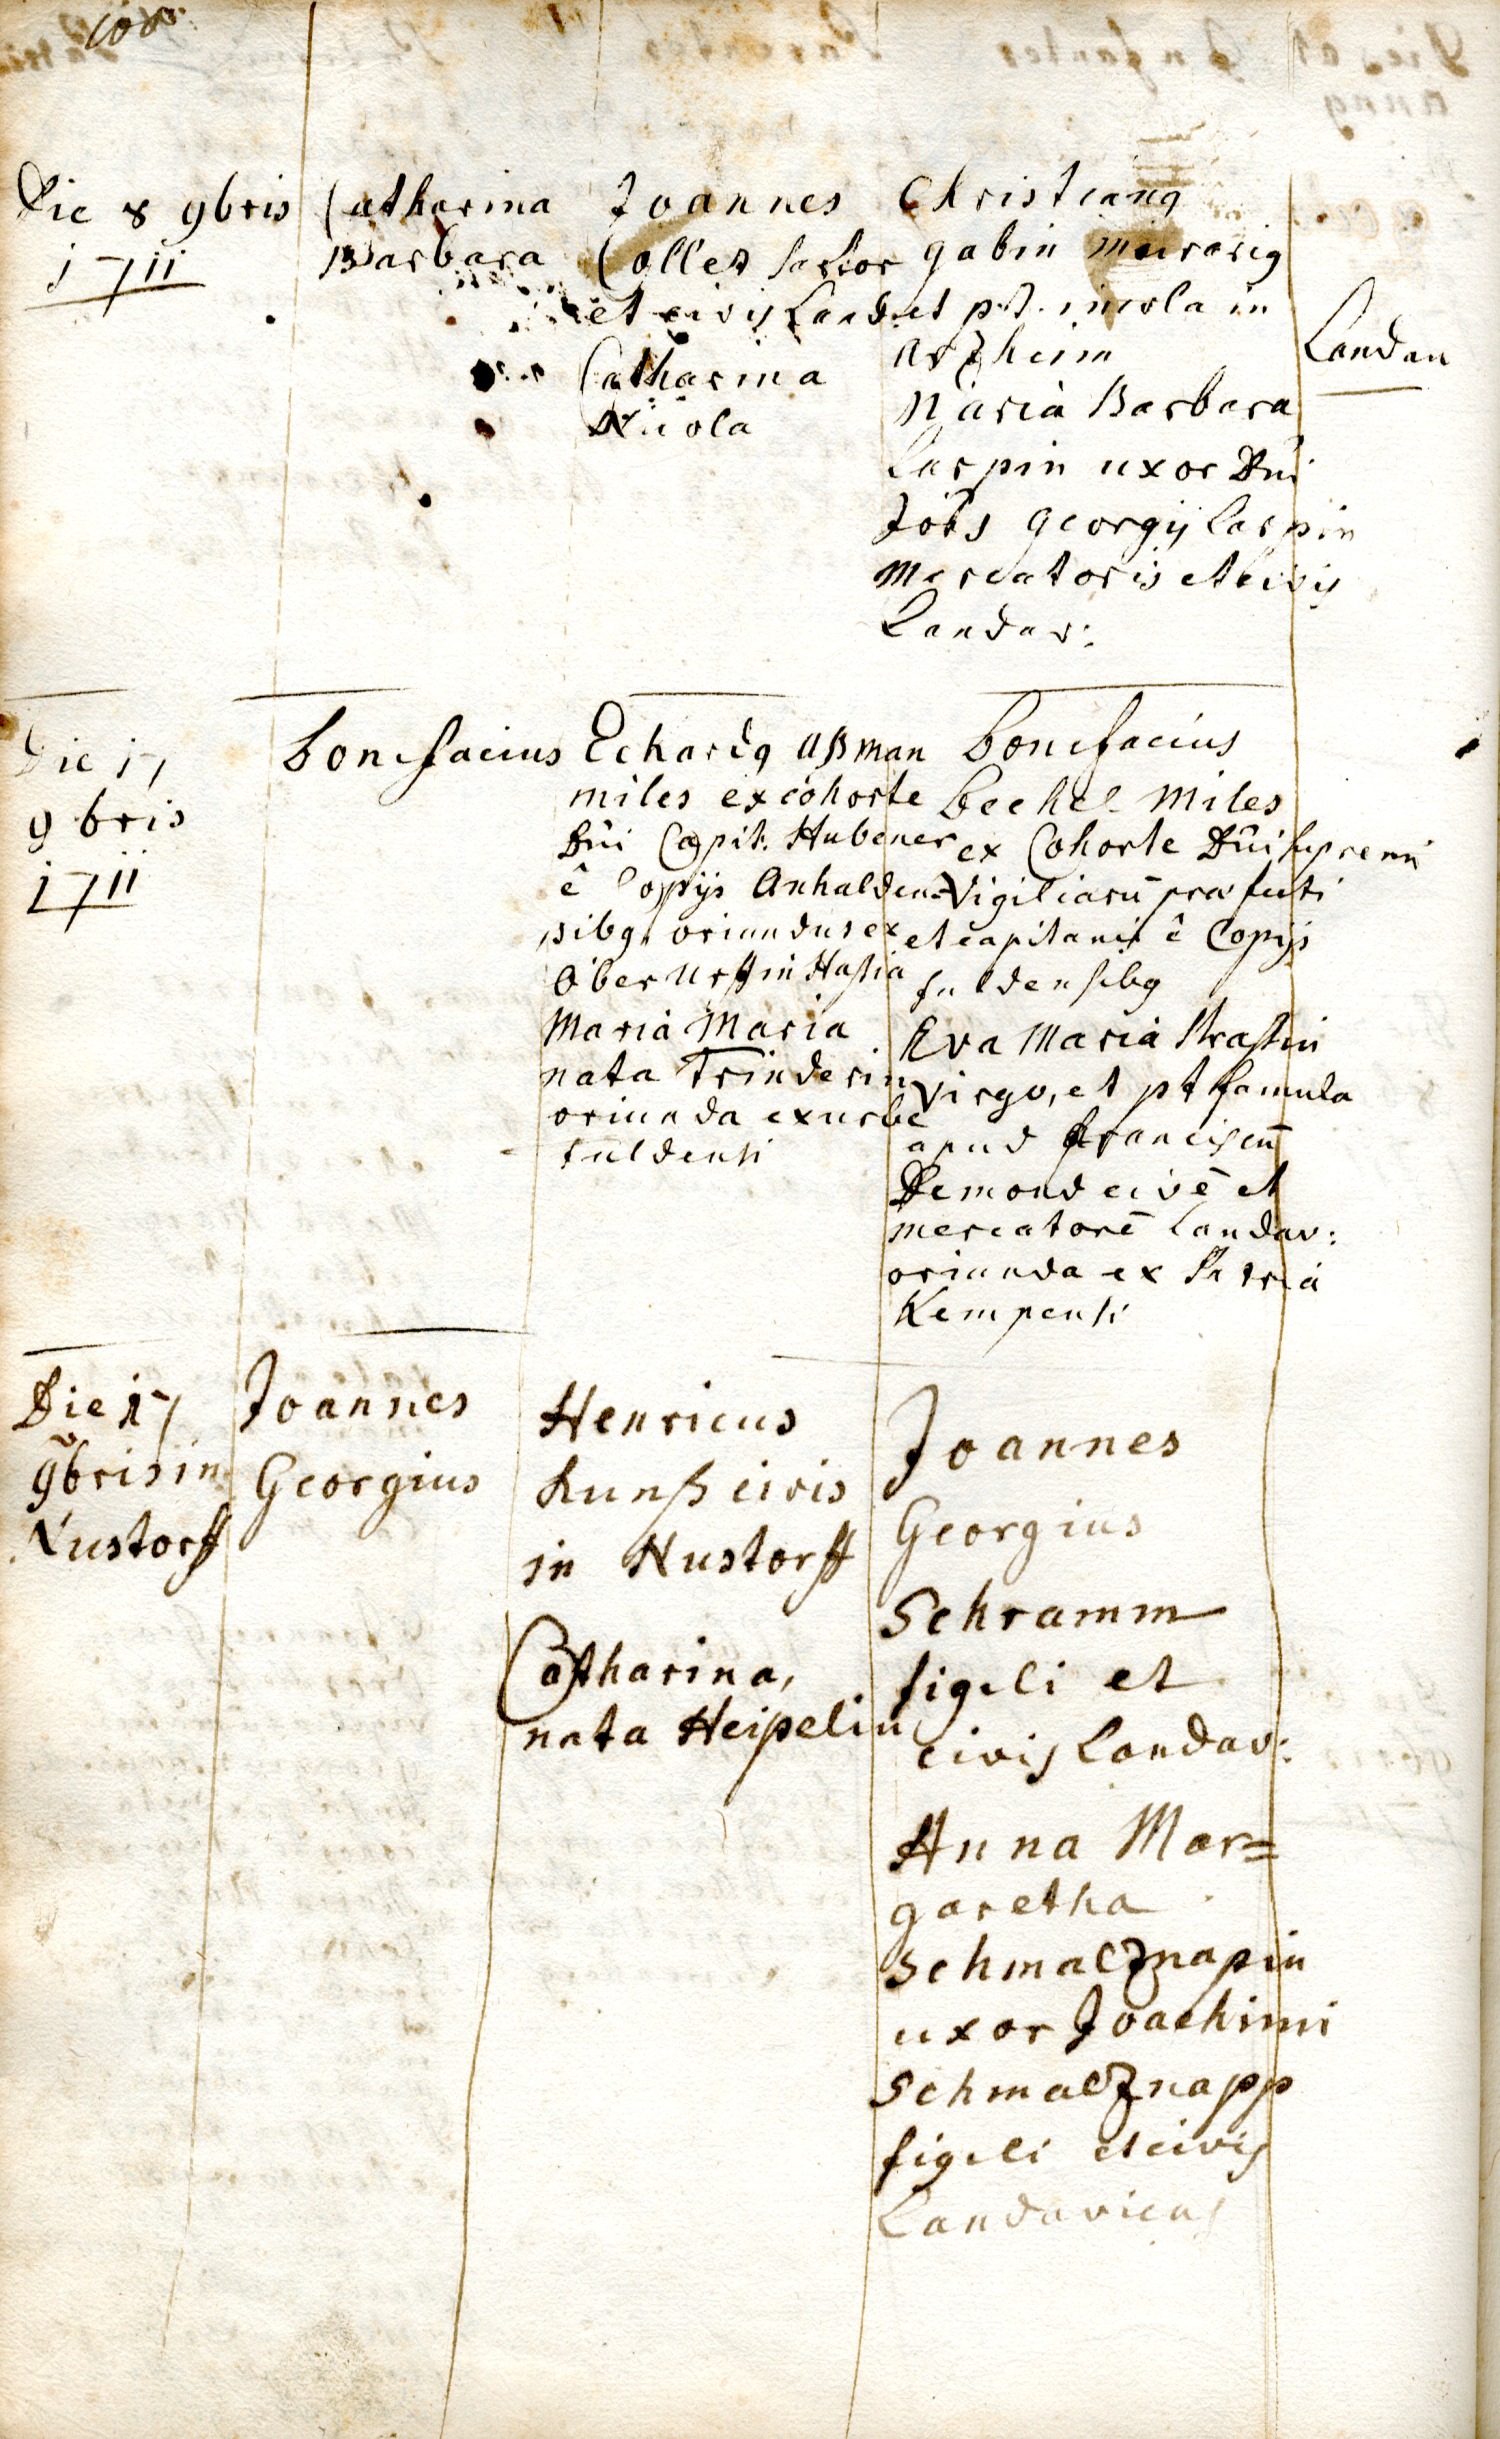 108.
Die 8 9bris
1711
Catharina
Barbara
Joannes
Collet sartor
et civis Land:
Catharina
Nicola
Christianq
gabin murariq
et p.t. incola in
Arzheim
Maria Barbara
Caspin uxor Dni
Jois Georgij Caspin
Mercatoris et civis
Landav:
Landau
Die 17
9bris
1711
Bonifacius
Echardq Aßman
miles ex cohorte
Dni Capit. Hubener
ê Copijs Anhalden=
sibq oriundus ex
Ober Urff in Hassia
Maria Maria
nata Trinderin
oriunda ex urbe
fuldensi
Bonifacius
Bechel Miles
ex Cohorte Dni supremi
Vigiliaru praefecti
et capitanei ê Copijs
fuldensibq
Eva Maria
virgo, et pt famula
apud franciscu
Demond civê et
mercatorê Landav:
oriunda ex Patriâ
Kempensi
Die 17
9bris in
Nustorff
Joannes
Georgius
Henricus
Kunß civis
in Nustorff
Catharina,
nata Heipelin
Joannes
Georgius
Schramm
figuli et
civis Landav:
Anna Mar=
garetha
Schmalznapin
uxor Joachimi
Schmalznapp
figuli et civis
Landavicus